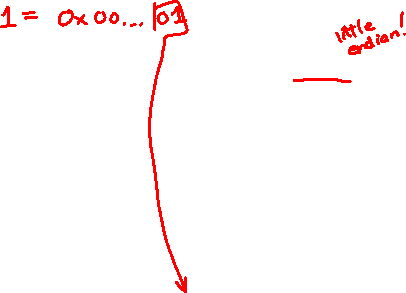 1 = 0x00...01
little
endian!